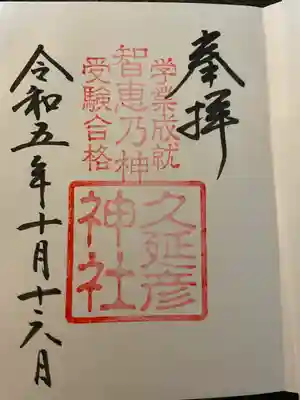 奉拝
学業成就
智恵乃神
受験合格
久延彦
神社
令和五年十月十六日